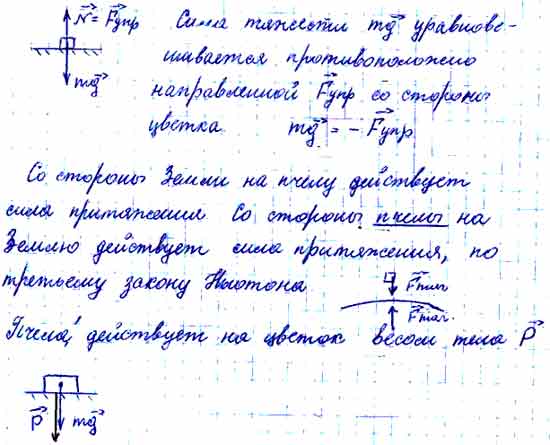 N⃗ = F⃗упр Сила тяжести mg⃗ уравнове-
шивается противоположно
mg⃗ направленной F⃗упр со стороны
цветка. mg⃗ = - F⃗упр
Со стороны Земли на пчелу действует
сила притяжения Со стороны пчелы на
Землю действует сила притяжения, по
третьему закону Ньютона
F⃗тяг
F⃗тяг.
Пчела действует на цветок весом тела P⃗
P⃗ mg⃗